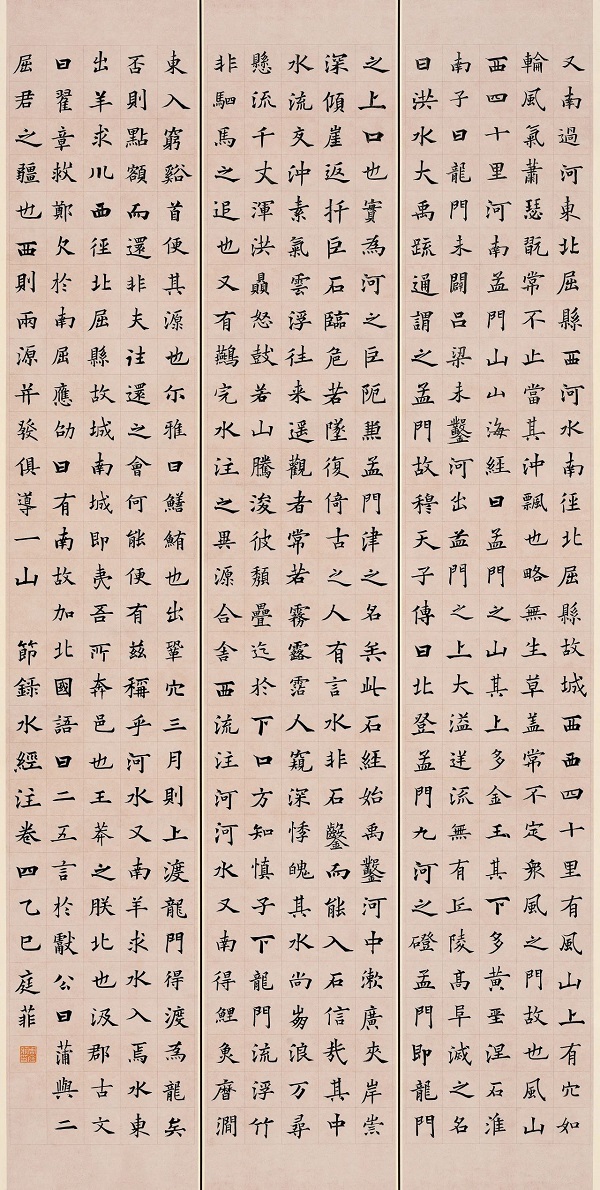 又南過河東北屈縣西河水南徑北屈縣故城西西四十里有風山上有穴如
輪風氣蕭瑟翫常不止當其沖飄也略無生草蓋常不定眾風之門故也風山
西四十里河南孟門山山海經曰孟門之山其上多金玉其下多黃堊涅石淮
南子曰龍門未闢呂梁未鑿河出孟門之上大溢逆流無有丘陵高阜滅之名
曰洪水大禹疏通謂之孟門故穆天子傳曰北登孟門九河之磴孟門即龍門
之上口也實為河之巨阨兼孟門津之名矣此石經始禹鑿河中漱廣夾岸崇
深傾崖返扞巨石臨危若墜復倚古之人有言水非石鑿而能入石信哉其中
水流交沖素氣雲浮往来遥觀者常若霧露霑人窺深悸魄其水尚崩浪万尋
懸流千丈渾洪贔怒鼓若山騰浚波頹疊迄於下口方知慎子下龍門流浮竹
非駟馬之追也又有鷰完水注之異源合舍西流注河河水又南得鯉魚歷澗
東入窮谿首便其源也尔雅曰鱔鮪也出鞏穴三月則上渡龍門得渡為龍矣
否則點額而還非夫往還之會何能便有茲稱乎河水又南羊求水入焉水東
出羊求川西徑北屈縣故城南城即夷吾所奔邑也王莽之朕北也汲郡古文
曰翟章救鄭次於南屈應劭曰有南故加北國語曰二五言於獻公曰蒲與二
屈君之疆也西則兩源并發俱導一山 節錄水經注卷四乙巳庭菲